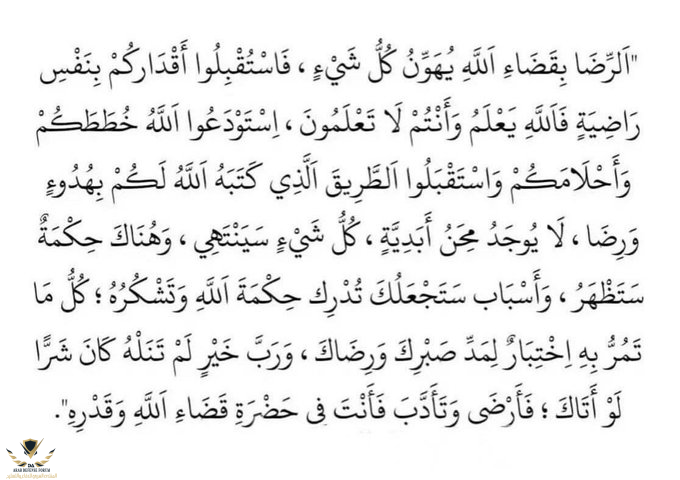 "اَلرِّضَا بِقَضَاءِ اَللَّهِ يُهَوِّنُ كُلُّ شَيْءٍ ، فَاسْتُقْبِلُوا أَقْدَارَكُمْ بِنَفْسِ
رَاضِيَةٍ فَاَللَّهِ يَعْلَمُ وَأَنْتُمْ لَا تَعْلَمُونَ ، اِسْتَوْدَعُوا اَللَّهُ خُطَطَكُمْ
وَأَحْلَامَكُمْ وَاسْتَقْبَلُوا اَلطَّرِيقَ اَلَّذِي كَتَبَهُ اَللَّهُ لَكُمْ بِهُدُوءٍ
وَرِضَا ، لَا يُوجَدُ مِحَنُ أَبَدِيَّةٍ ، كُلُّ شَيْءٍ سَيَنْتَهِي ، وَهُنَاكَ حِكْمَةٌ
سَتَظْهَرُ ، وَأَسْبَاب سَتَجْعَلُكَ تُدْرِك حِكْمَةَ اَللَّهِ وَتَشْكُرُهُ ؛ كُلُّ مَا
تَمُرُّ بِهِ اِخْتِبَارٌ لِمَدِّ صَبْرِكَ وَرِضَاكَ ، وَرَبَّ خَيْرٍ لَمْ تَنَلْهُ كَانَ شَرًّا
لَوْ أَتَاكَ ؛ فَأَرْضَى وَتَأَدَّبَ فَأَنْتَ فِي حَضْرَةِ قَضَاءِ اَللَّهِ وَقَدْرِهِ".
DA
ARAB DEFENSE FORUM